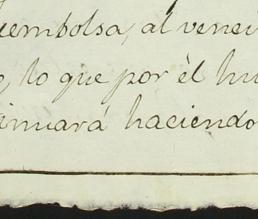 iembolsa, al venci
, lo que por él hu
inuará haciendo